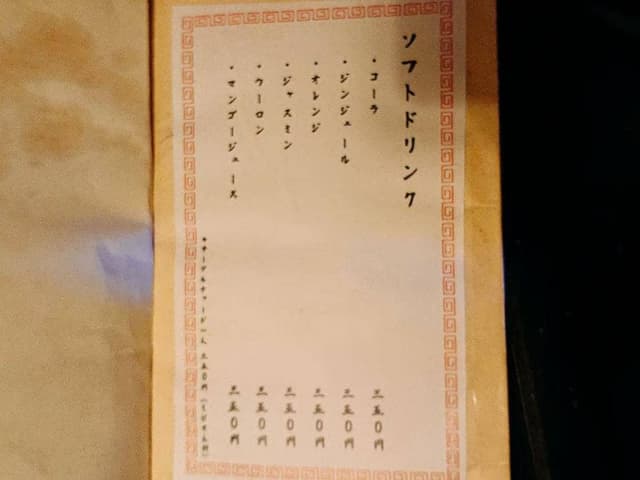 ソフトドリンク
・コーラ 三五〇円
・ジンジュール 三五〇円
・オレンジ 三五〇円
・ジャスミン 三五〇円
・ウーロン 三五〇円
・マンゴージュース 三五〇円
＊テーブルチャージ一人 三五〇円